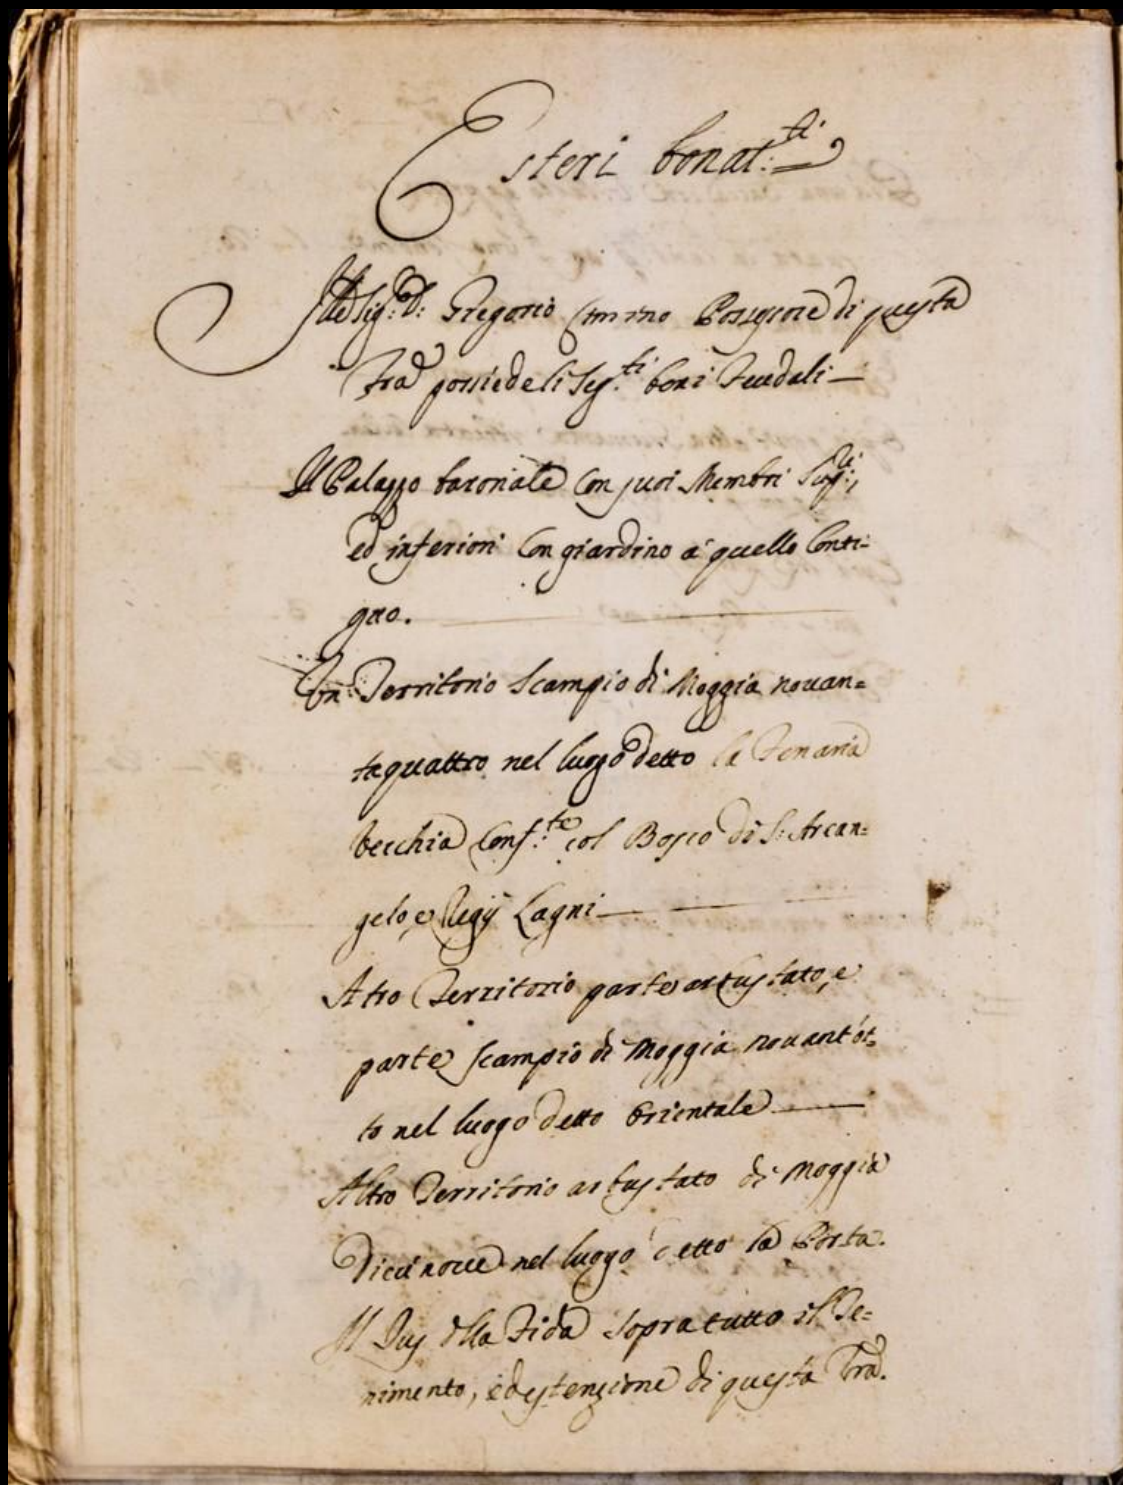 Esteri bonat.ti
Ill.e Sig.r D: Gregorio Possessore di questa
Tra possiede li seg.ti boni feudali
Il Palazzo baronale con suoi Membri sup.ri,
ed inferiori con giardino à quello conti=
guo.
Un Territorio scampio di Moggia novan=
taquattro nel luogo detto la
Vecchia conf.te col Bosco di S: Arcan=
gelo, e Regij Lagni
Atro Territorio parte arbustato, e
parte scampio di Moggia novant'ot=
to nel luogo detto Orientale
Altro Territorio arbustato di moggia
Diecinove nel luogo detto la Porta.
Il Jus della Fida sopra tutto il Te=
nimento, ed estenzione di questa Tra.